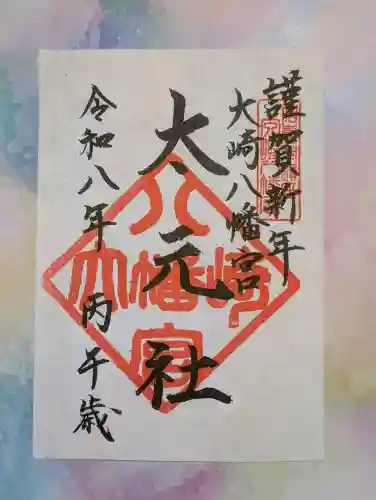 謹賀新年
大崎八幡宮
大元社
令和八年 丙午歳
八幡宮
大崎